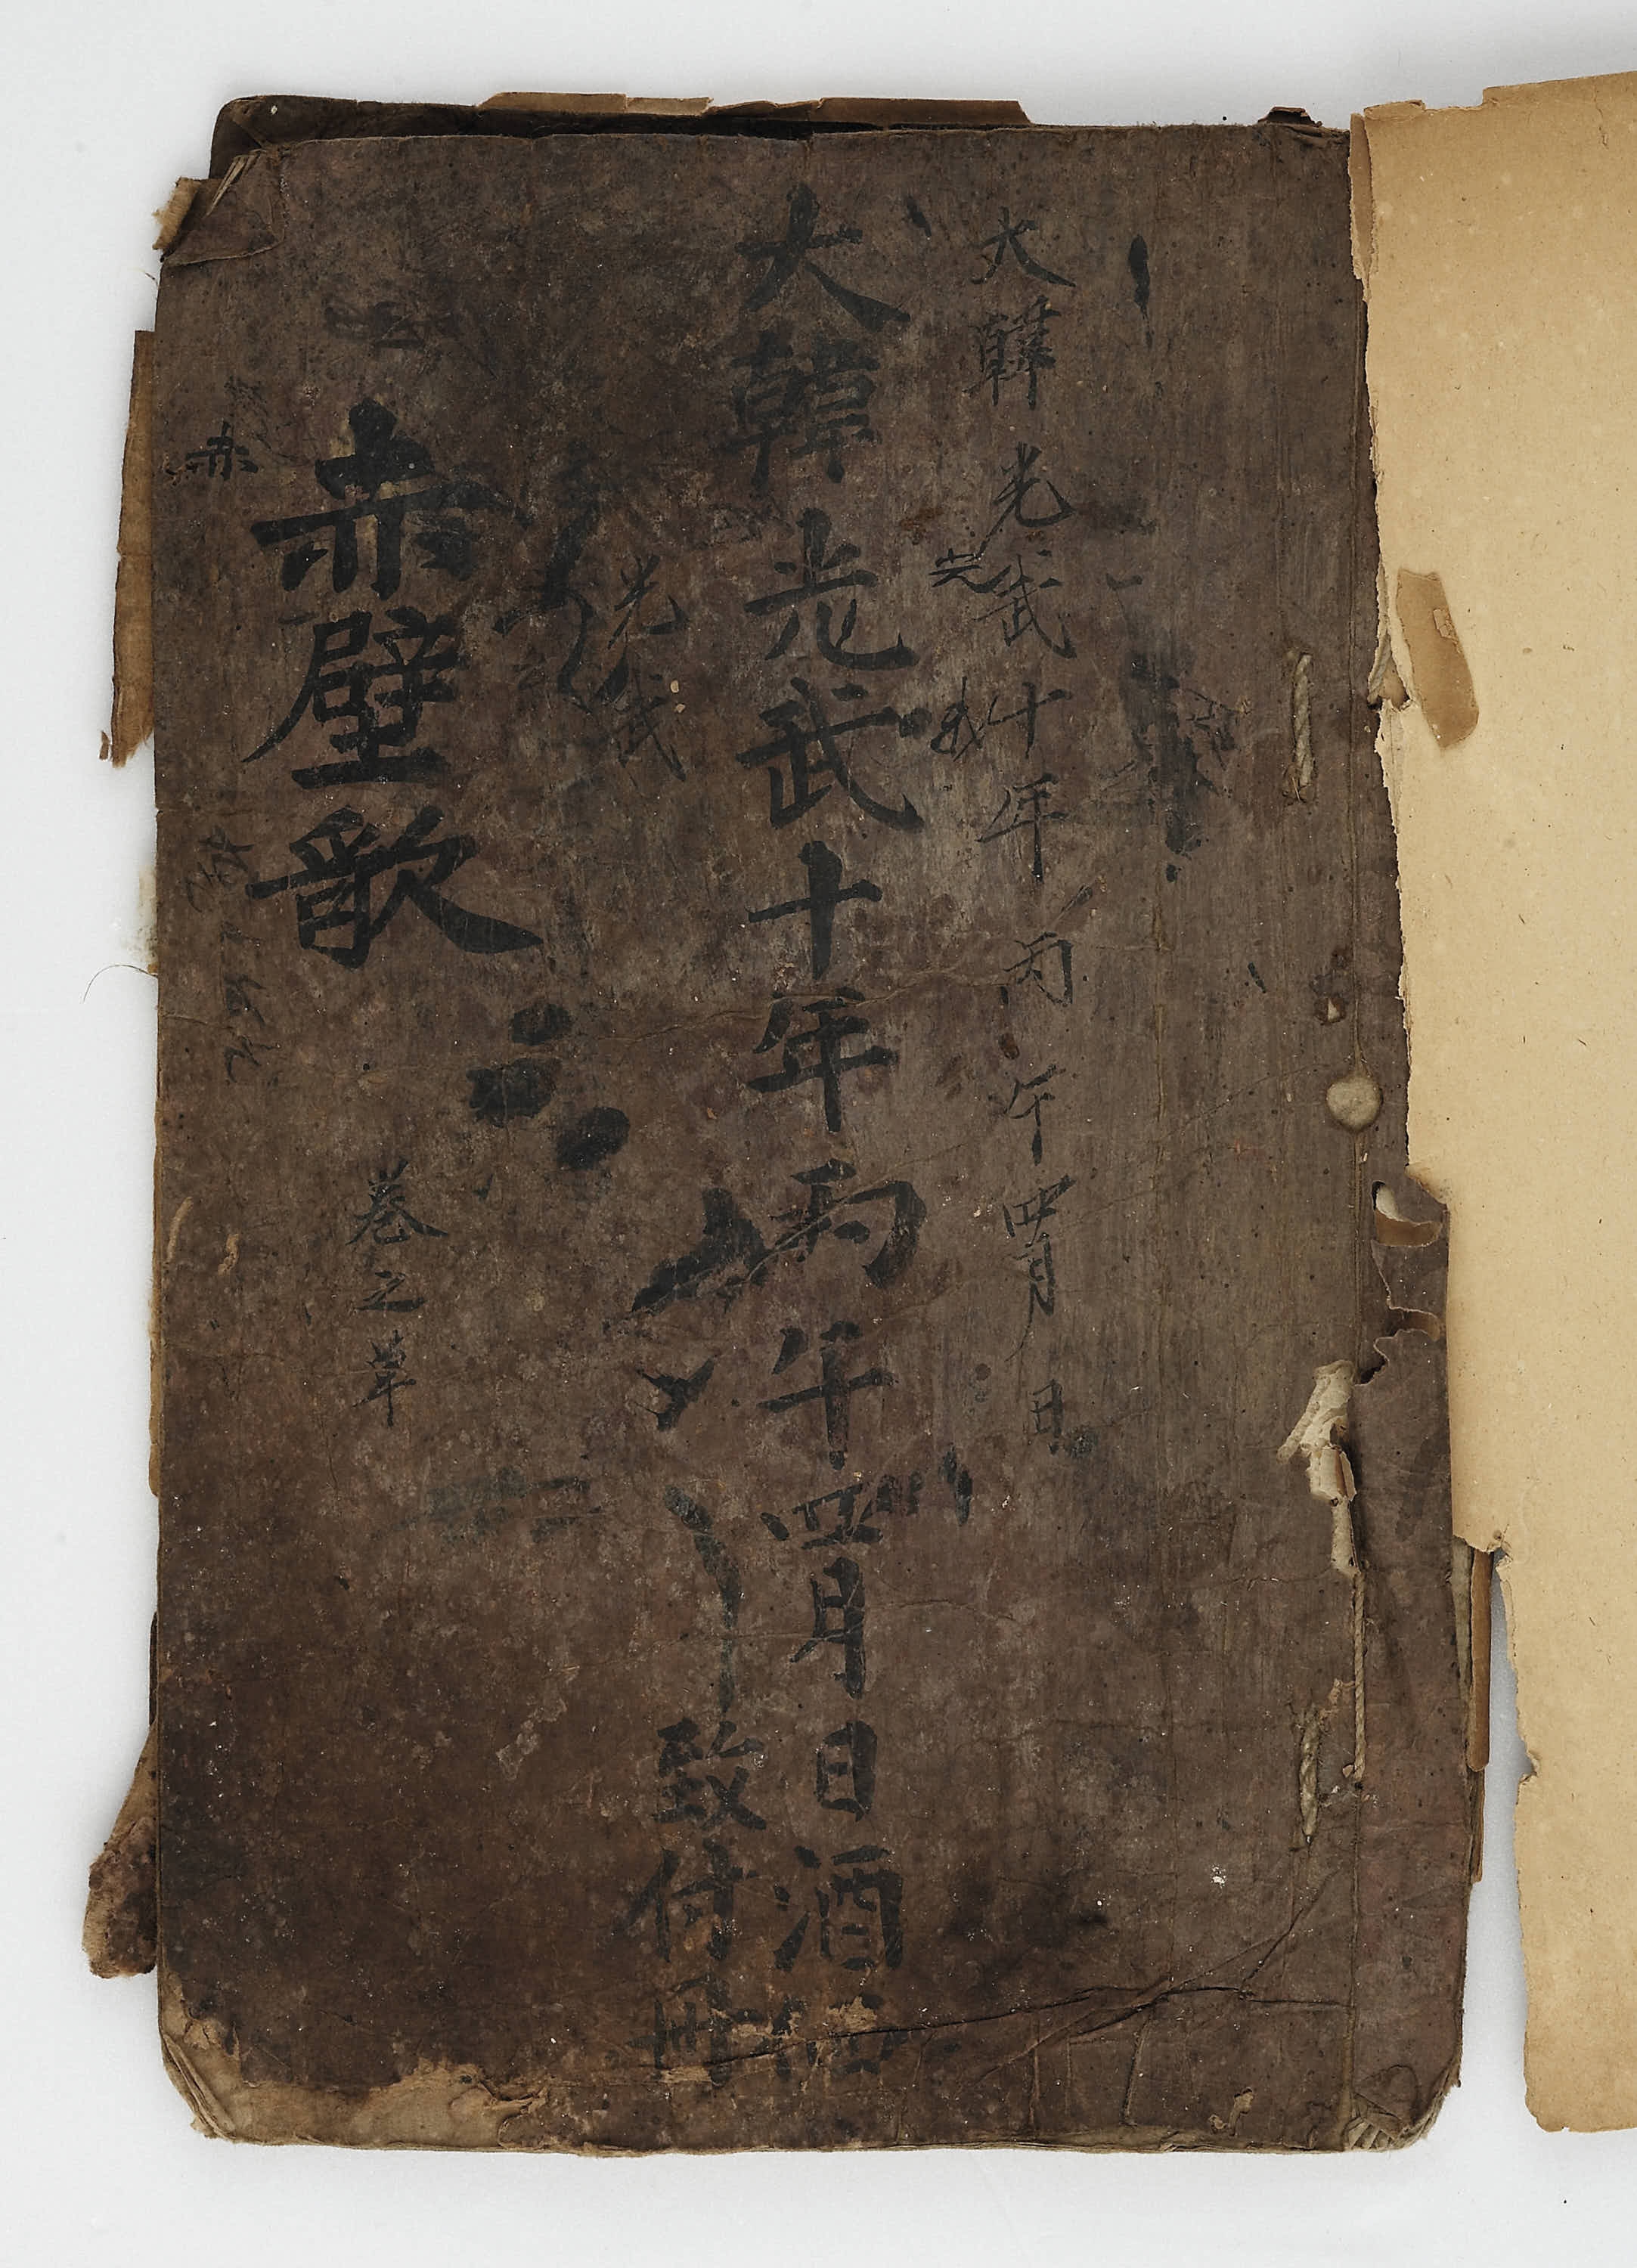 大韓光武十年丙午四月日
光
武
大韓光武十年丙午四月日酒
致付冊
光武
赤壁歌
卷之單
赤